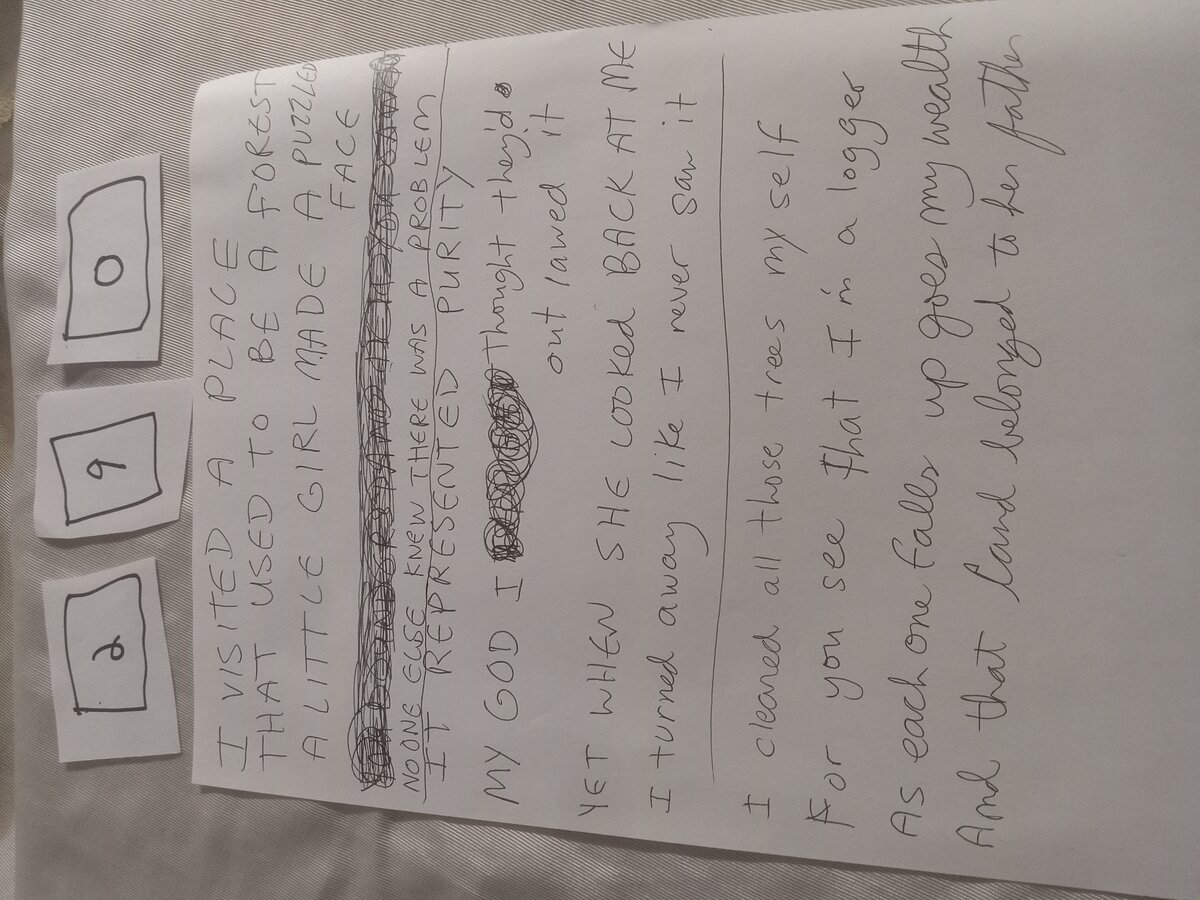 2 9 0
I VISITED A PLACE
THAT USED TO BE A FOREST
A LITTLE GIRL MADE A PUZZLED
FACE
NO ONE ELSE KNEW THERE WAS A PROBLEM
IT REPRESENTED PURITY
MY GOD I Thought they'd
out lawed it
YET WHEN SHE LOOKED BACK AT ME
I turned away like I never saw it
I cleared all those trees my self
For you see that I'm a logger
As each one falls up goes my wealth
And that land belonged to her father